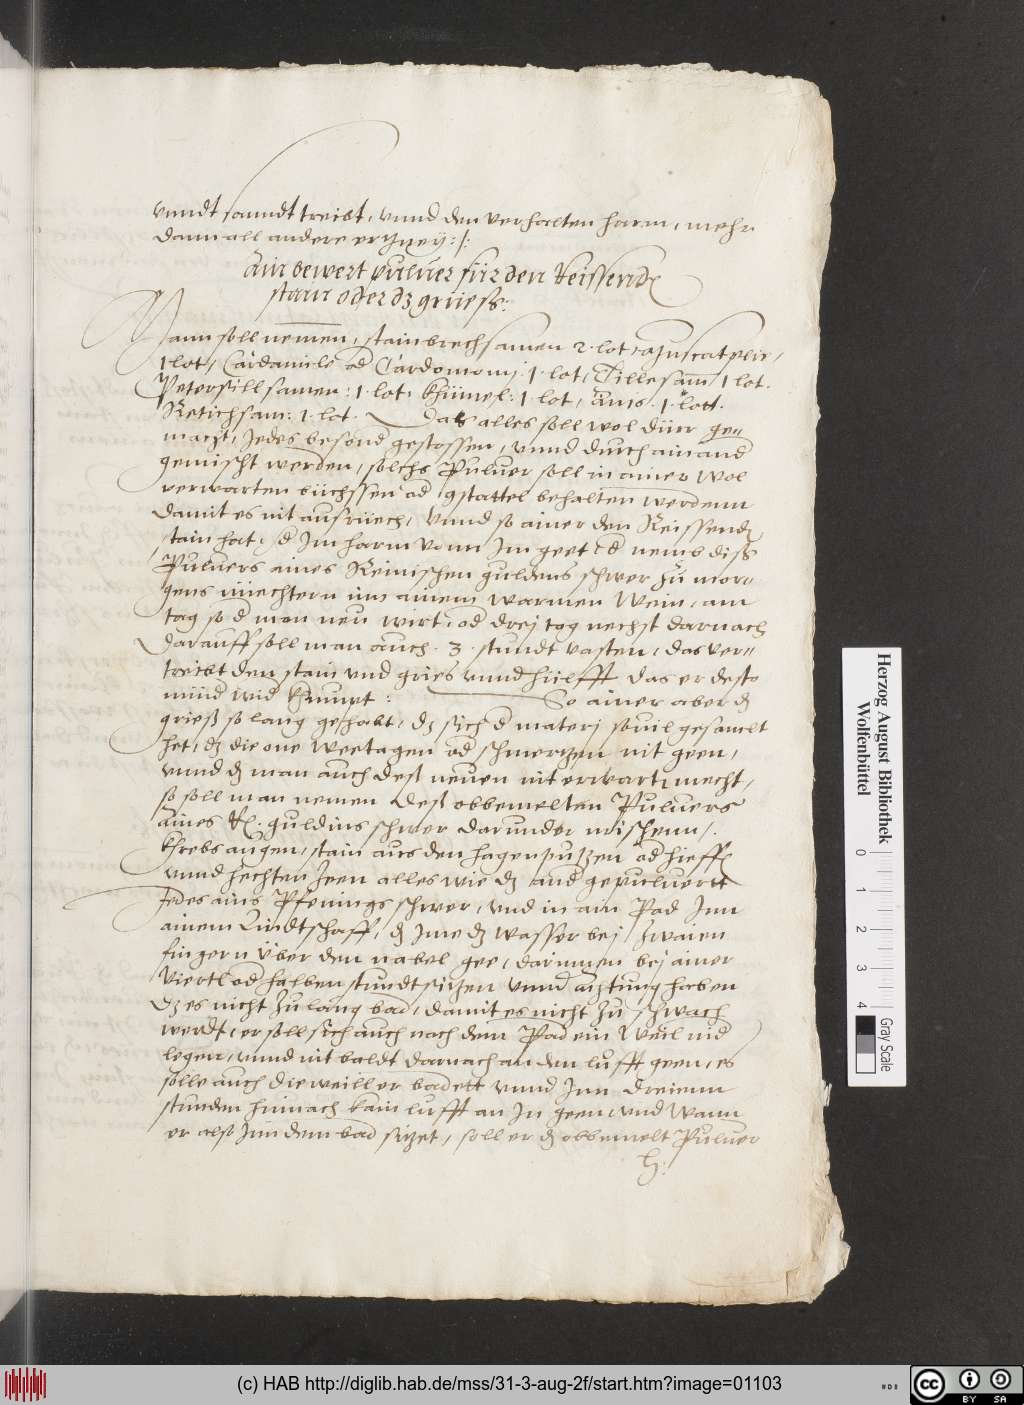 vnndt sanndt treibt, vnnd den verhalten harm, mehr
dann all andere ertzney :/:
Ain bewert puluer für den Reissendn
stain oder dz grüess:
Mann soll nemen, stainbrechsamen 2. lot,
1 lot, Cardamile od Cardomomj. 1. lot, Dillesam 1 lot.
Petersillsamen: 1. lot, Khümel: 1. lot, änis. 1. lott.
Retichsam: 1. lot. Das alles soll wol dürr ge-
macht, Jedes besond gestossen, vnnd durch ainand
gemischt werden, solchs Puluer soll in ainer wol
verwarten büchssen od gstattel behalten werdenn
damit es nit ausrüech, Vnnd so ainer den Reissendn
stain hat, d Im harm vonn Im geet, d nemb diss
Puluers aines Reinischen guldens schwer zu mor-
gens nüechtern inn ainem warmen Wein, am
tag so d mon neu wirt, od drej tag nechst darnach
darauff soll man auch. 3. stundt vasten, das ver-
treibt den stain vnd gries vnnd hülfft das er desto
mind wid khumpt: So ainer aber dn
grieß so lang gehabt, dz sich d materj souil gesamlt
het, dz die one Weetagen od schmertzen nit geen,
vnnd dz man auch dess neuen nit erwartn mecht,
so soll man nemen dess obbemelten Puluers
aines Rn. guldins schwer darunder mischenn/.
khrebs augen, stain aus den hagenputzen od hieffn
vnnd hechten Zeen alles wie dz and gepuluertt
Jedes ains Pfenings schwer, vnd in ain Pad Inn
ainem Lindtschaff, dz Ime dz wasser bej Zwaien
fingern über den nabel gee, darinnen bej ainer
Viertl od halben stundt sitzen vnnd achtung haben
dz es nicht zu lang bad, damit es nicht zu schwach
werdt, er soll sich auch nach dem Pad ein Weil nid
legen, vnnd nit baldt darnach an den lufft geen, es
solle auch die weill er badett vnnd Inn dreienn
stunden hinnach kain lufft an In geen, vnd Wann
er also Inn dem bad sitzet, soll er dz obbemelt Puluer
Herzog August Bibliothek
Wolfenbüttel
0 1 2 3 4
Gray Scale
(c) HAB http://diglib.hab.de/mss/31-3-aug-2f/start.htm?image=01103
cc BY SA